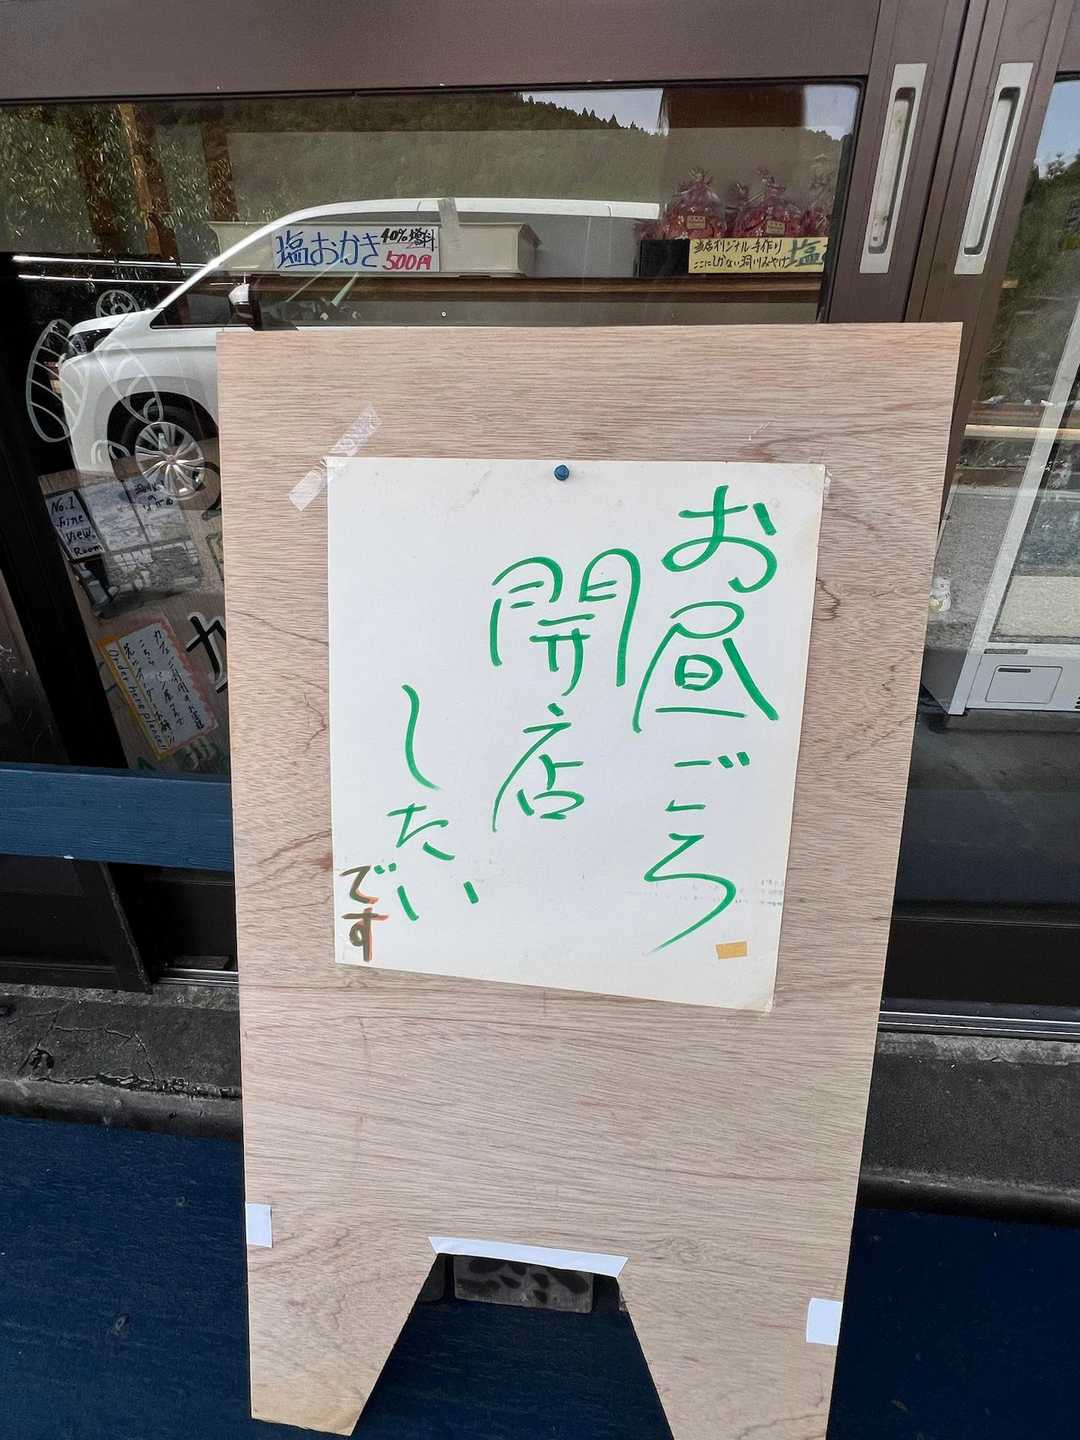 お昼ごろ
開店
したい
です
塩おかき
40%増量
500円
当店オリジナル手作り
ここにしかない
塩
No.1
Fine
View
Room
Order here please!!
カ